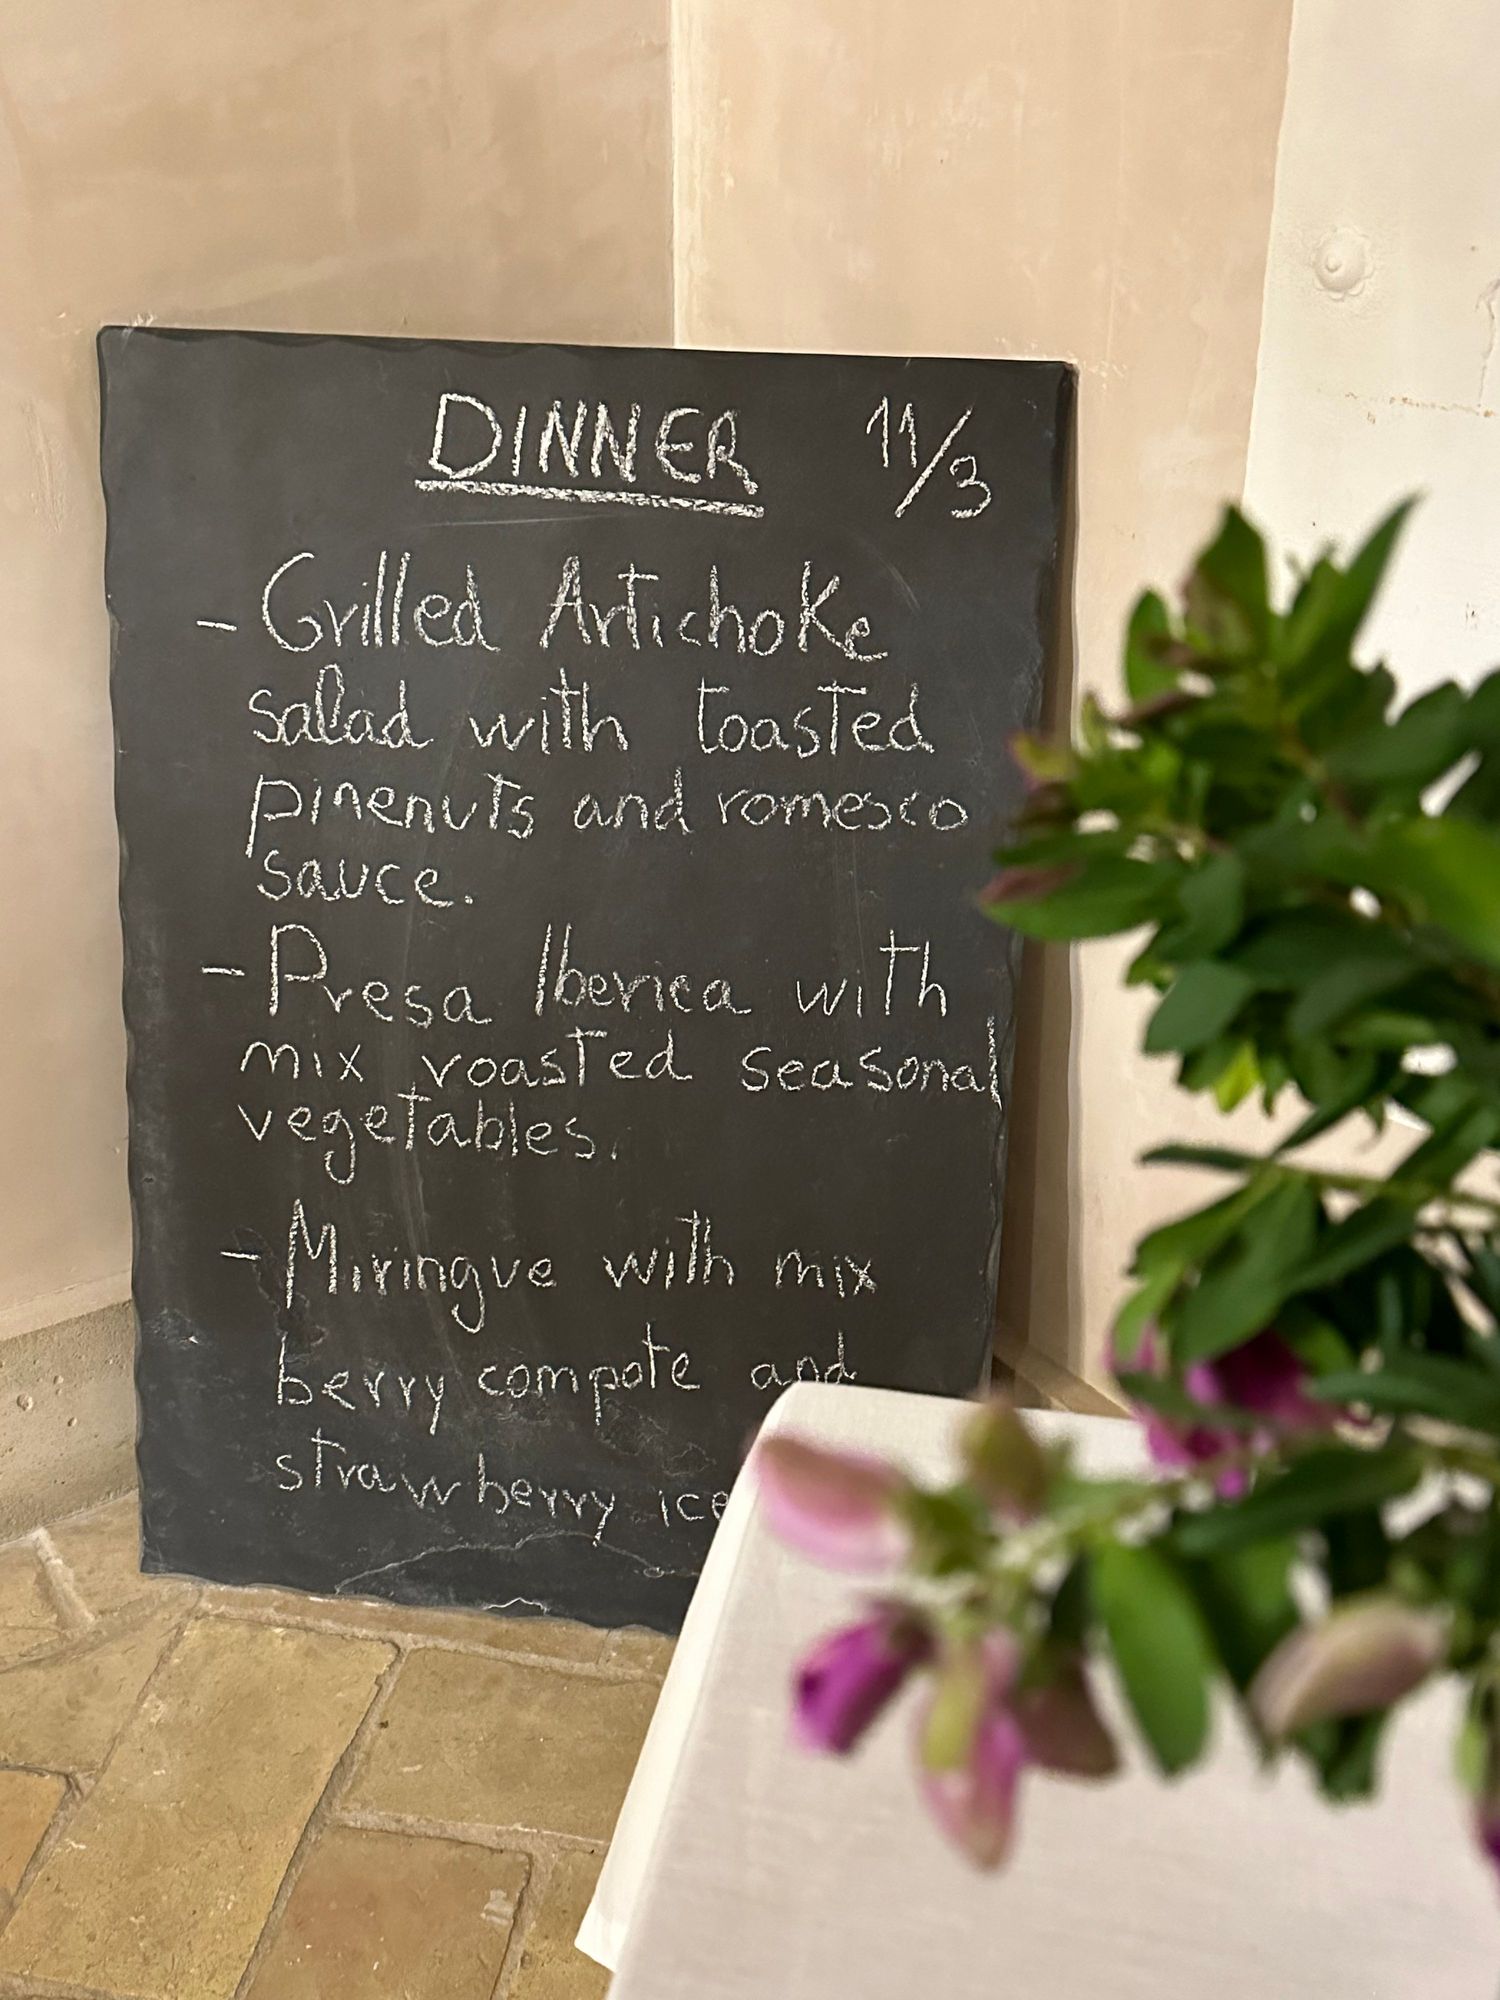 DINNER 11/3
- Grilled Artichoke
salad with toasted
pinenuts and romesco
sauce.
- Presa Iberica with
mix roasted seasonal
vegetables.
- Miringue with mix
berry compote and
strawberry ice